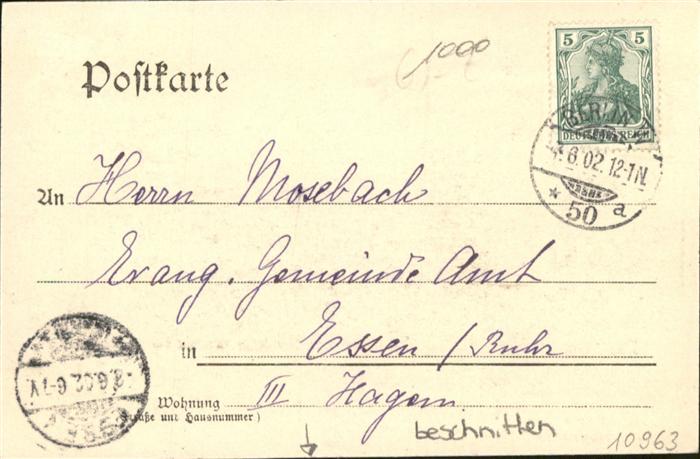 1000
Postkarte
5 5
DEUTSCHES REICH
BERLIN
6.02.12-1N.
* 50 a
An Herrn Mosebach
Evang. Gemeinde Amt
in Essen / Ruhr
Wohnung III Hagen
(Straße und Hausnummer)
6.02.6-7V.
beschnitten
10963